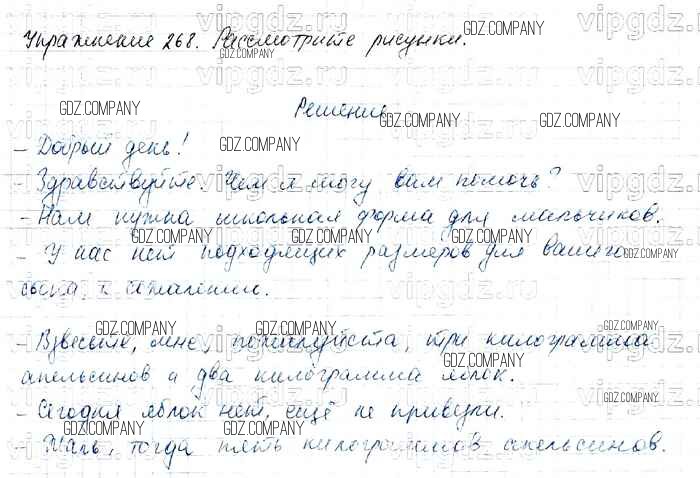 Упражнение 268. Рассмотрите рисунки.
Решение
- Добрый день!
- Здравствуйте. Чем я могу вам помочь?
- Нам нужна школьная форма для мальчиков.
- У нас нет подходящих размеров для вашего
сына, к сожалению.
- Взвесьте, мне, пожалуйста, три килограмма
апельсинов и два килограмма яблок.
- Сегодня яблок нет, ещё не привезли.
- Жаль, тогда пять килограммов апельсинов.
GDZ.COMPANY
vipgdz.ru